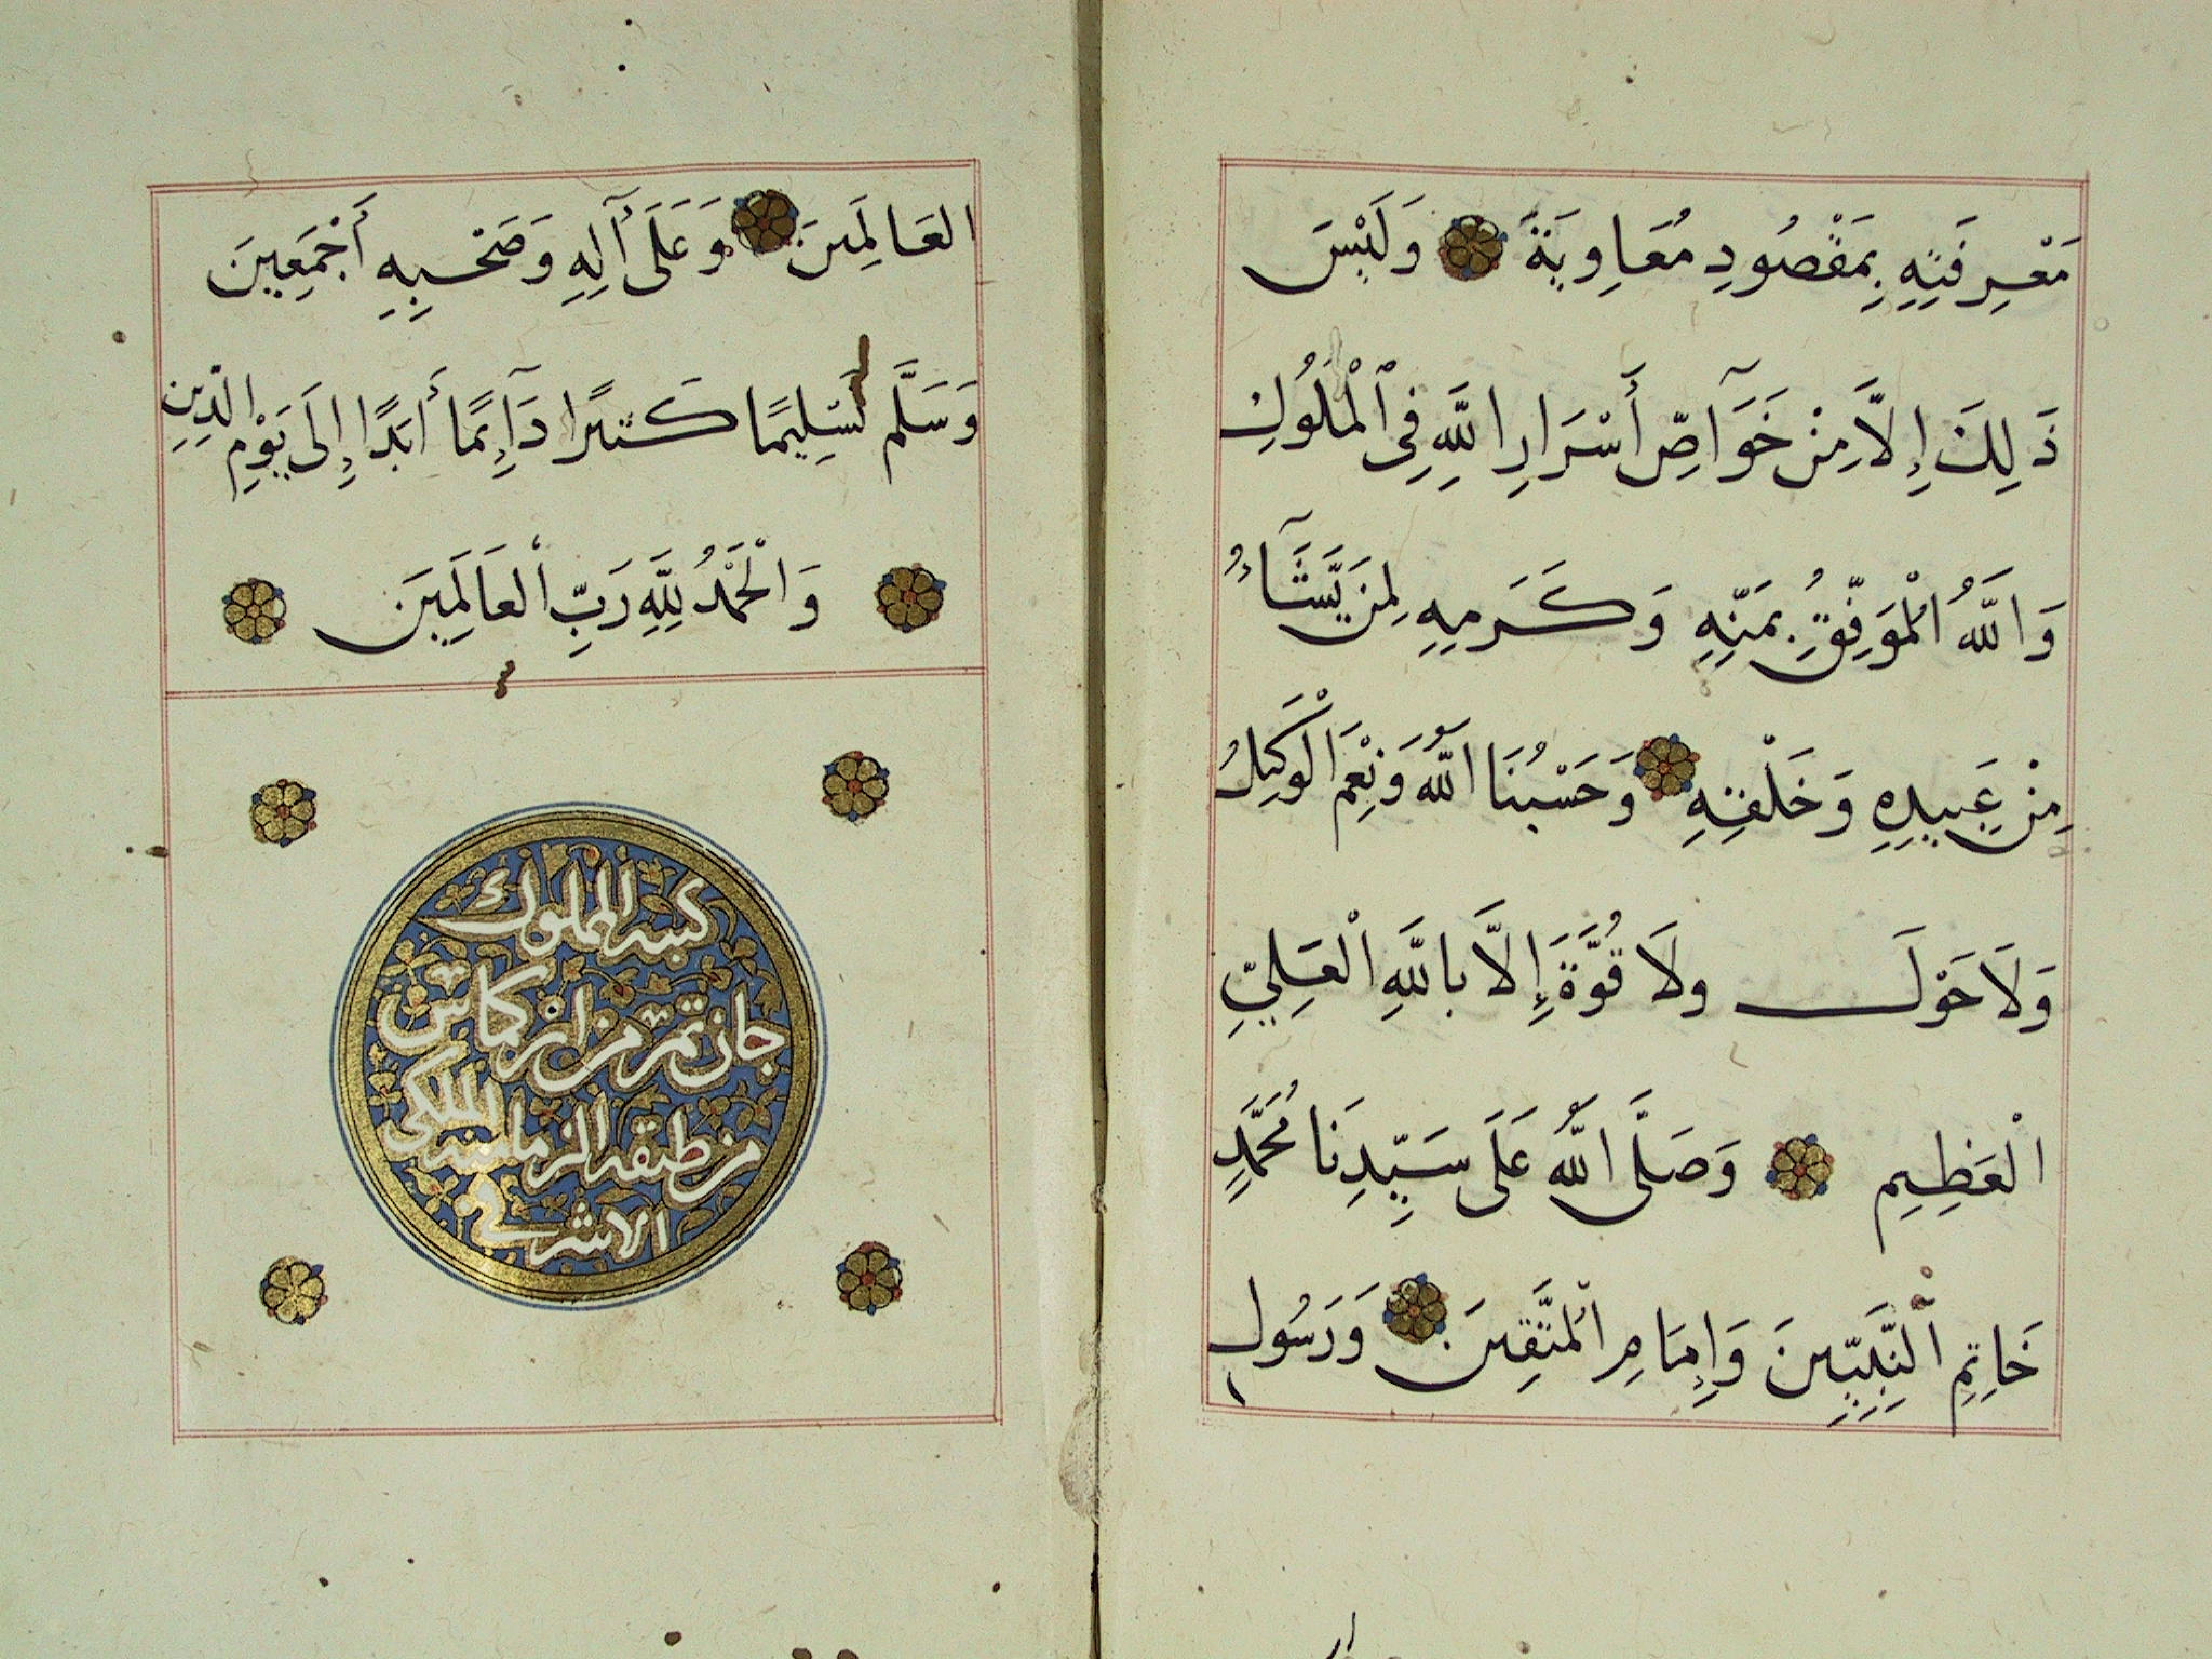 مَعْرِفَتِهِ بِمَقْصُودِ مُعَاوِيَةَ وَلَيْسَ
ذَلِكَ إِلَّا مِنْ خَوَآصِّ أَسْرَارِ اللَّهِ فِي ٱلْمُلُوكِ
وَاللَّهُ الْمُوَفِّقُ بِمَنِّهِ وَكَرَمِهِ لِمَن يَّشَآءُ
مِنْ عَبِيدِهِ وَخَلْقِهِ وَحَسْبُنَا اللَّهُ وَنِعْمَ الْوَكِيلُ
وَلَا حَوْلَ ولَا قُوَّةَ إِلَّا بِاللَّهِ الْعَلِيِّ
الْعَظِيمِ وَصَلَّى اللَّهُ عَلَى سَيِّدِنَا مُحَمَّدٍ
خَاتِمِ النَّبِيِّينَ وَإِمَامِ الْمُتَّقِينَ وَرَسُولِ
العَالَمِينَ وَعَلَى آلِهِ وَصَحْبِهِ أَجْمَعِينَ
وَسَلَّم تَسْلِيمًا كَثِيرًا دَآئِمًا أَبَدًا إِلَى يَوْمِ الدِّينِ
وَالْحَمْدُ لِلَّهِ رَبِّ الْعَالَمِينَ
كتبه المملوك
جان تمر من ازكماش
من طبقه الزماميه الملكى
الاشرفى